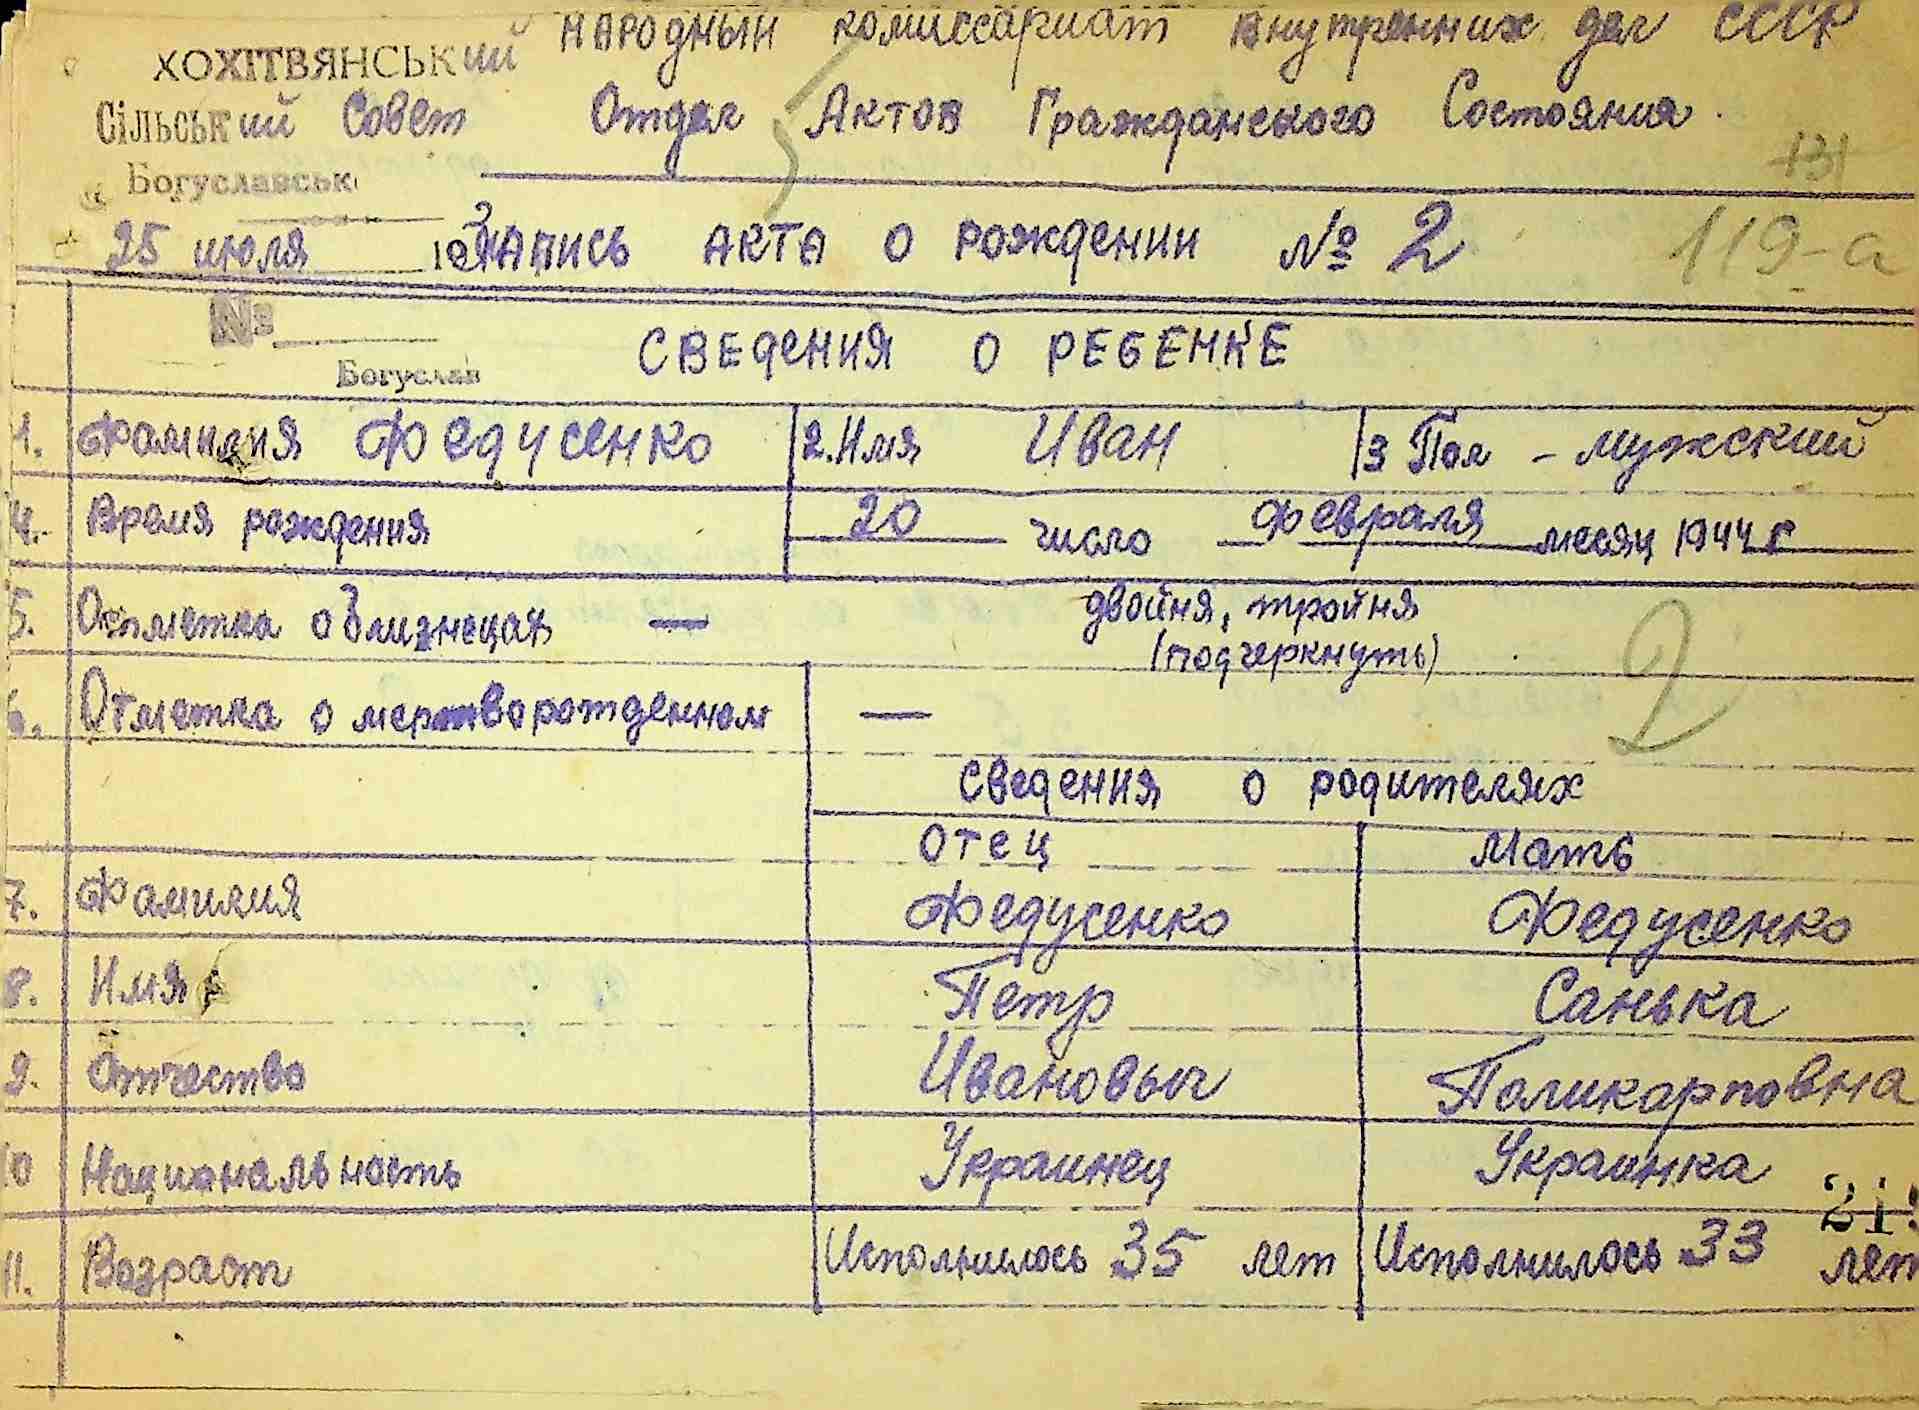 Народный комиссариат внутренних дел СССР
ХОХІТВЯНСЬКий
Сільський Совет Отдел Актов Гражданского Состояния
131
Богуславськ
25 июля 19 Запись акта о рождении № 2 119-а
№
СВЕДЕНИЯ О РЕБЕНКЕ
Богуслав
1. Фамилия Федусенко 2. Имя Иван 3 Пол - мужский
4. Время рождения 20 число Февраля месяц 1944 г
5. Отметка о близнецах — двойня, тройня
(подчеркнуть)
2
6. Отметка о мертворожденном —
Сведения о родителях
Отец Мать
7. Фамилия Федусенко Федусенко
8. Имя Петр Санька
9. Отчество Ивановыч Поликарповна
10 Национальность Украинец Украинка
21
11. Возраст Исполнилось 35 лет Исполнилось 33 лет